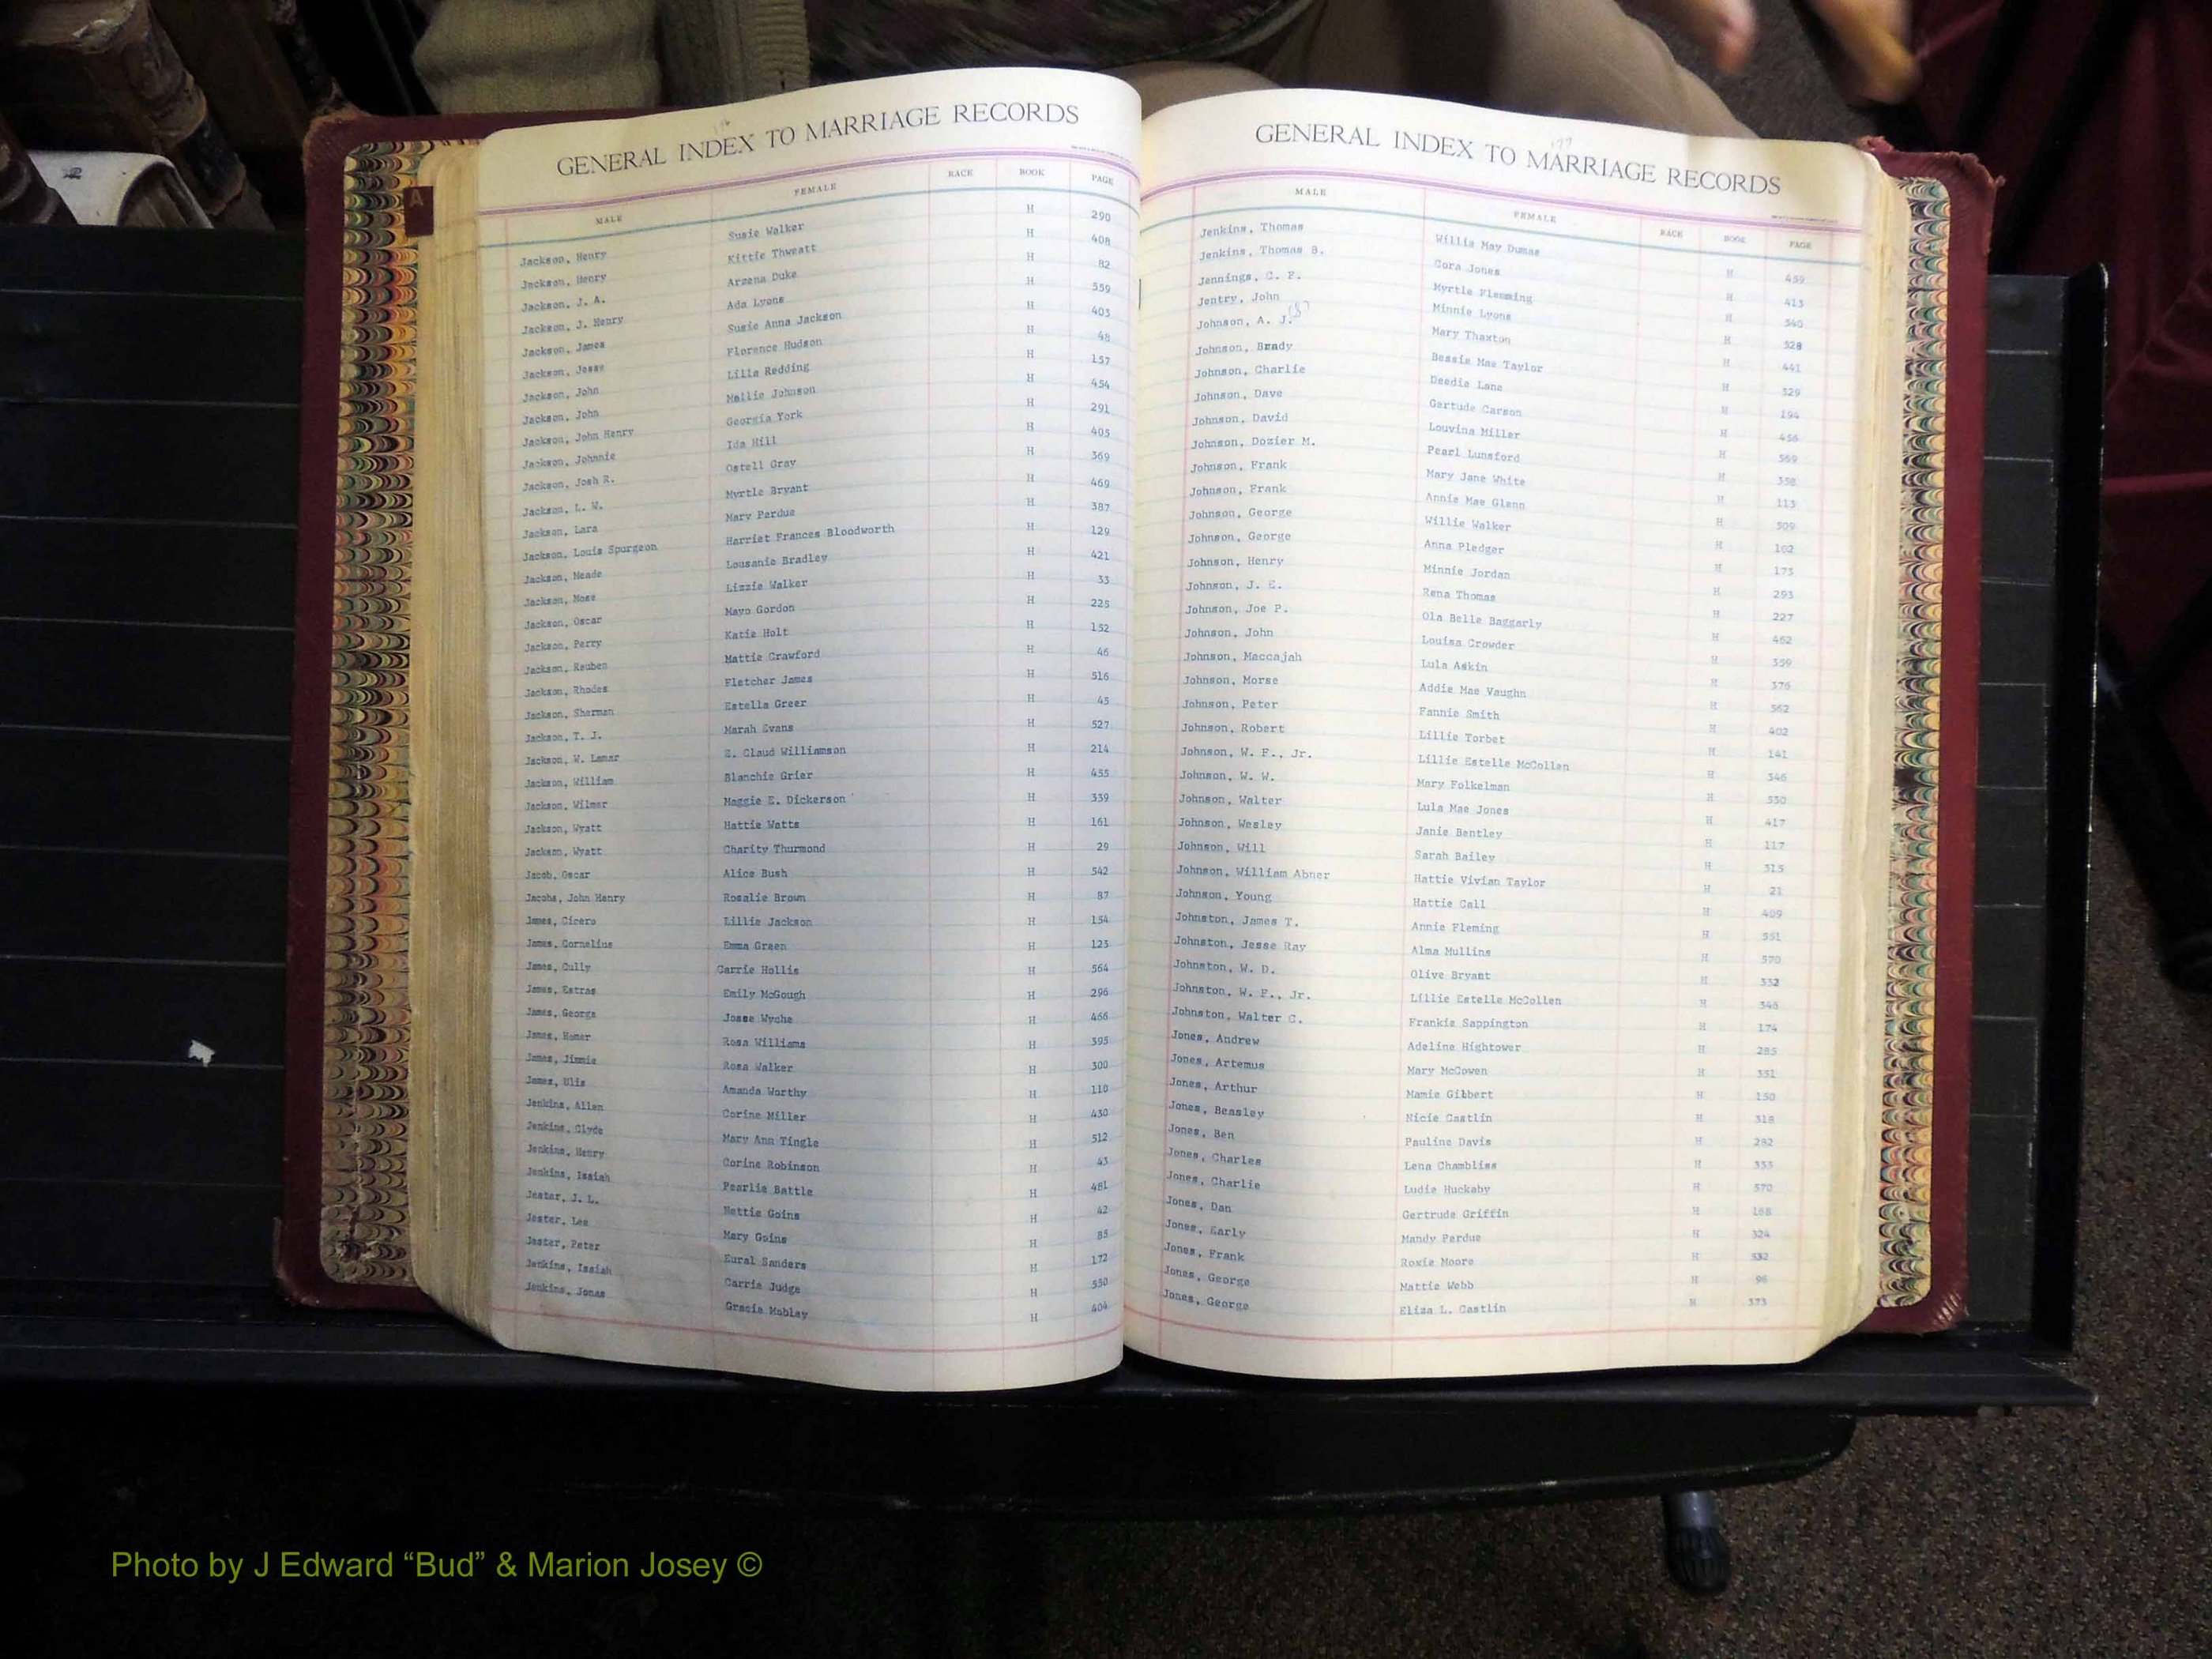 GENERAL INDEX TO MARRIAGE RECORDS
MALE FEMALE RACE BOOK PAGE
Jackson, Henry Susie Walker H 290
Jackson, Henry Kittie Thweatt H 408
Jackson, J. A. Arzena Duke H 82
Jackson, J. Henry Ada Lyons H 559
Jackson, James Susie Anna Jackson H 403
Jackson, Jesse Florence Hudson H 48
Jackson, John Lilla Redding H 157
Jackson, John Mollie Johnson H 454
Jackson, John Henry Georgia York H 291
Jackson, Johnnie Ida Hill H 405
Jackson, Josh R. Ostell Gray H 369
Jackson, L. W. Myrtle Bryant H 469
Jackson, Lara Mary Perdue H 387
Jackson, Louis Spurgeon Harriet Frances Bloodworth H 129
Jackson, Meade Lousanie Bradley H 421
Jackson, Mose Lizzie Walker H 33
Jackson, Oscar Mayo Gordon H 225
Jackson, Perry Katie Holt H 132
Jackson, Reuben Mattie Crawford H 46
Jackson, Rhodes Fletcher James H 516
Jackson, Sherman Estella Greer H 45
Jackson, T. J. Marah Evans H 527
Jackson, W. Lamar E. Claud Williamson H 214
Jackson, William Blanchie Grier H 455
Jackson, Wilmer Maggie E. Dickerson H 339
Jackson, Wyatt Hattie Watts H 161
Jackson, Wyatt Charity Thurmond H 29
Jacob, Oscar Alice Bush H 542
Jacobs, John Henry Rosalie Brown H 87
James, Cicero Lillie Jackson H 154
James, Cornelius Emma Green H 123
James, Cully Carrie Hollis H 564
James, Estras Emily McGough H 296
James, George Josse Wyche H 466
James, Homer Rosa Williams H 395
James, Jimmie Rosa Walker H 300
James, Ulis Amanda Worthy H 110
Jenkins, Allen Corine Miller H 430
Jenkins, Clyde Mary Ann Tingle H 512
Jenkins, Henry Corine Robinson H 43
Jenkins, Isaiah Pearlie Battle H 481
Jester, J. L. Nettie Goins H 42
Jester, Lee Mary Goins H 85
Jester, Peter Eural Sanders H 172
Jenkins, Isaiah Carrie Judge H 550
Jenkins, Jonas Gracie Mobley H 404
177
GENERAL INDEX TO MARRIAGE RECORDS
MALE FEMALE RACE BOOK PAGE
Jenkins, Thomas Willie May Dumas H 459
Jenkins, Thomas B. Cora Jones H 413
Jennings, C. F. Myrtle Flemming H 540
Jentry, John Minnie Lyons H 328
Johnson, A. J. Mary Thaxton H 441
Johnson, Brady Bessie Mae Taylor H 329
Johnson, Charlie Deedie Lane H 194
Johnson, Dave Gertude Carson H 456
Johnson, David Louvina Miller H 569
Johnson, Dozier M. Pearl Lunsford H 358
Johnson, Frank Mary Jane White H 113
Johnson, Frank Annie Mae Glenn H 509
Johnson, George Willie Walker H 102
Johnson, George Anna Pledger H 173
Johnson, Henry Minnie Jordan H 293
Johnson, J. E. Rena Thomas H 227
Johnson, Joe P. Ola Belle Baggarly H 462
Johnson, John Louisa Crowder H 359
Johnson, Maccajah Lula Askin H 376
Johnson, Morse Addie Mae Vaughn H 562
Johnson, Peter Fannie Smith H 402
Johnson, Robert Lillie Torbet H 141
Johnson, W. F., Jr. Lillie Estelle McCollen H 346
Johnson, W. W. Mary Folkelman H 550
Johnson, Walter Lula Mae Jones H 417
Johnson, Wesley Janie Bentley H 117
Johnson, Will Sarah Bailey H 315
Johnson, William Abner Hattie Vivian Taylor H 21
Johnson, Young Hattie Call H 409
Johnston, James T. Annie Fleming H 551
Johnston, Jesse Ray Alma Mullins H 370
Johnston, W. D. Olive Bryant H 332
Johnston, W. F., Jr. Lillie Estelle McCollen H 346
Johnston, Walter C. Frankie Sappington H 174
Jones, Andrew Adeline Hightower H 285
Jones, Artemus Mary McCowen H 351
Jones, Arthur Mamie Gibbert H 150
Jones, Beasley Nicie Castlin H 318
Jones, Ben Pauline Davis H 292
Jones, Charles Lena Chambliss H 353
Jones, Charlie Ludie Huckaby H 570
Jones, Dan Gertrude Griffin H 168
Jones, Early Mandy Perdue H 324
Jones, Frank Roxie Moore H 532
Jones, George Mattie Webb H 96
Jones, George Eliza L. Castlin H 373
A
Photo by J Edward “Bud” & Marion Josey ©